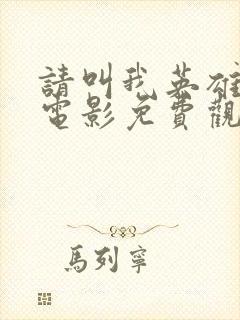 請叫我英雄
電影免費觀
馬列寧